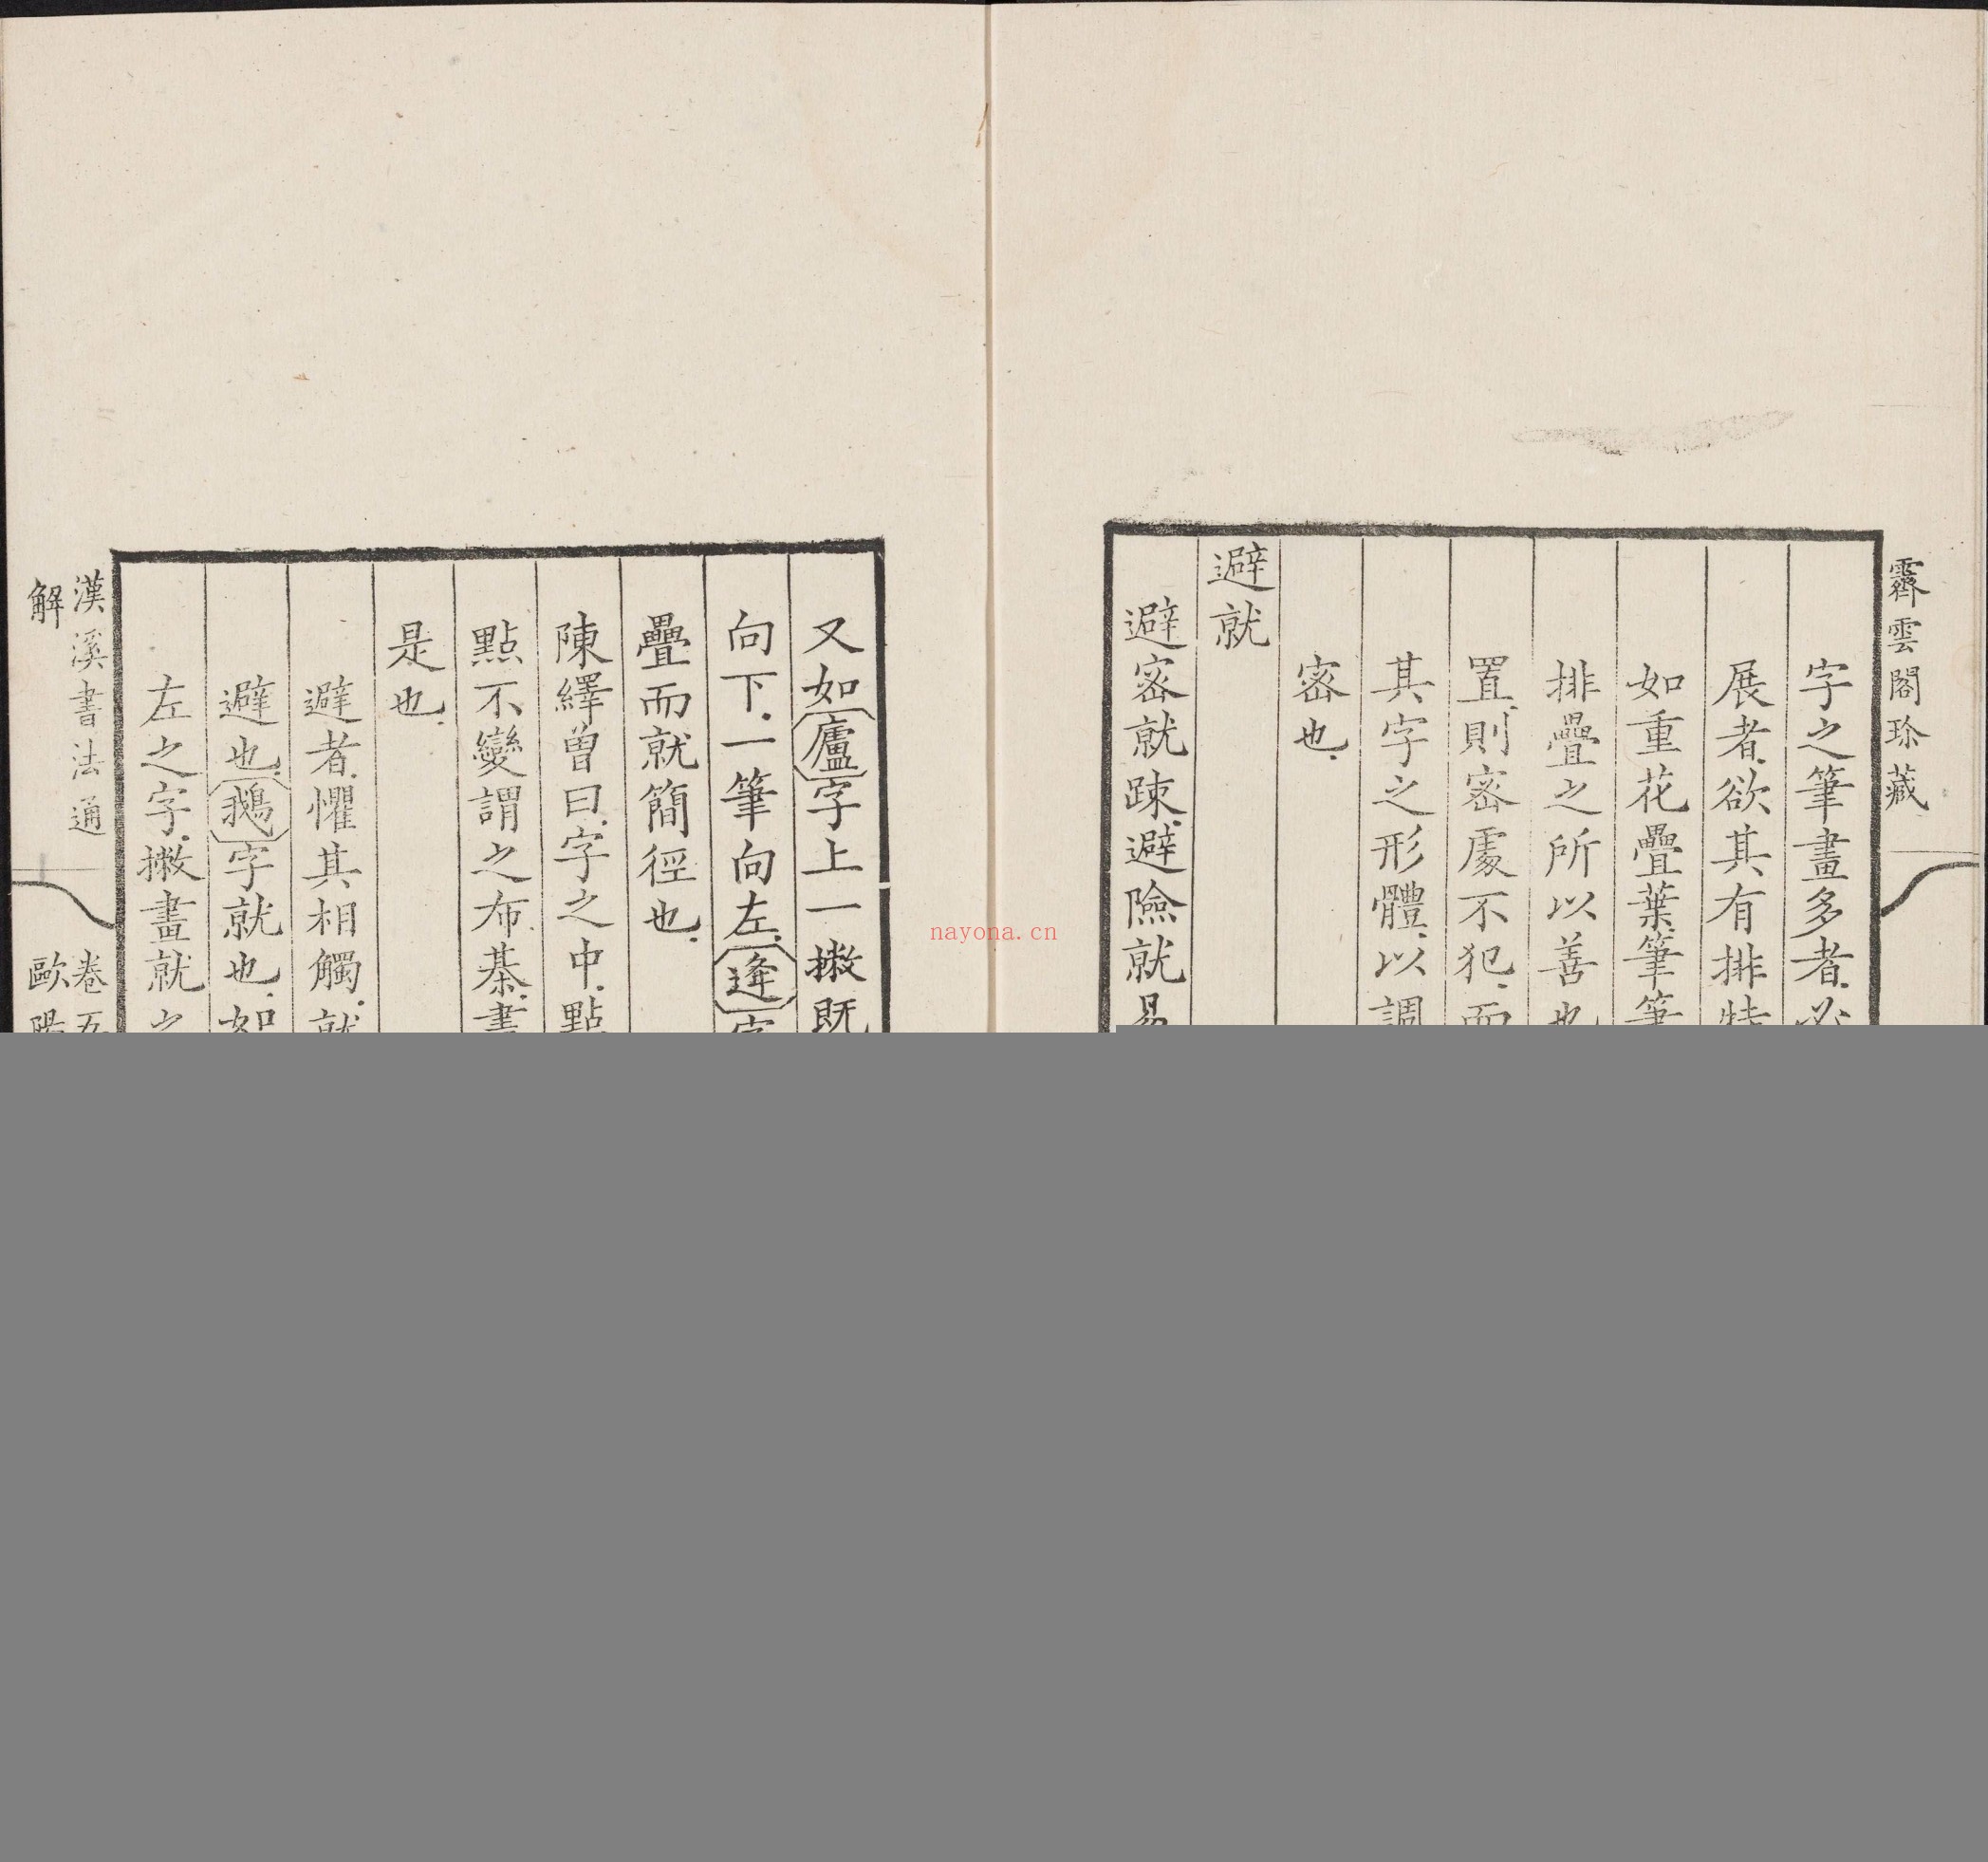 霽雲閣珍藏
字之筆畫多者必
展者欲其有排特
如重花疊葉筆筆
排疊之所以善也
置則密處不犯而
其字之形體以調
密也
避就
避密就疎避險就易
又如廬字上一撇既
向下一筆向左逢字
疊而就簡徑也
陳繹曾曰字之中點
點不變謂之布棊畫
是也
避者懼其相觸就
避也鵝字就也如
左之字撇畫就之
漢溪書法通解
卷五
歐陽
nayona.cn